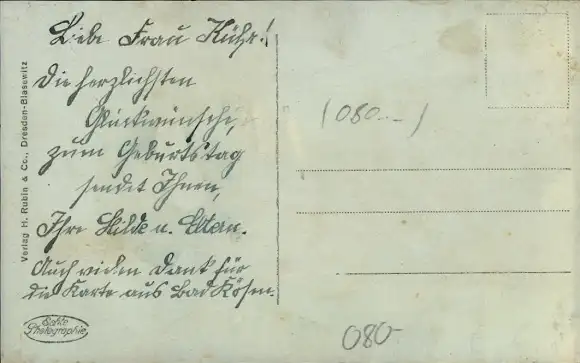 Liebe Frau Kühr!
Die herzlichsten
Glückwünsche,
zum Geburtstag
sendet Ihnen,
Ihre Hilde u. Eltern.
Auch vielen Dank für
die Karte aus Bad Kösen.
Verlag H. Rubin & Co., Dresden-Blasewitz
Echte
Photographie
(080.--)
080-